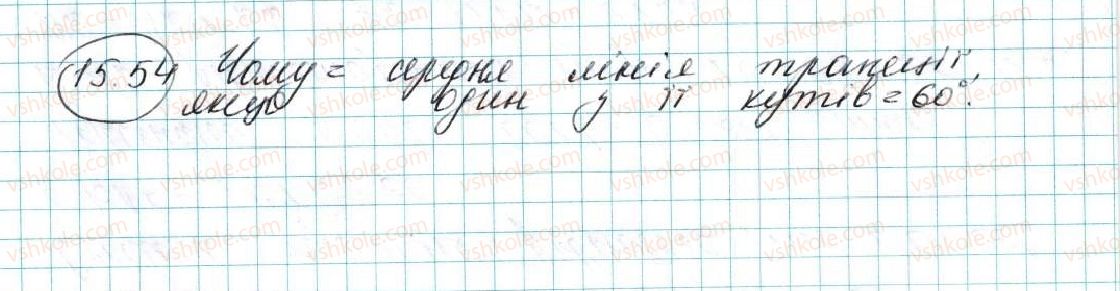 15.54 Чому = середня лінія трапеції,
якщо один з її кутів = 60°.